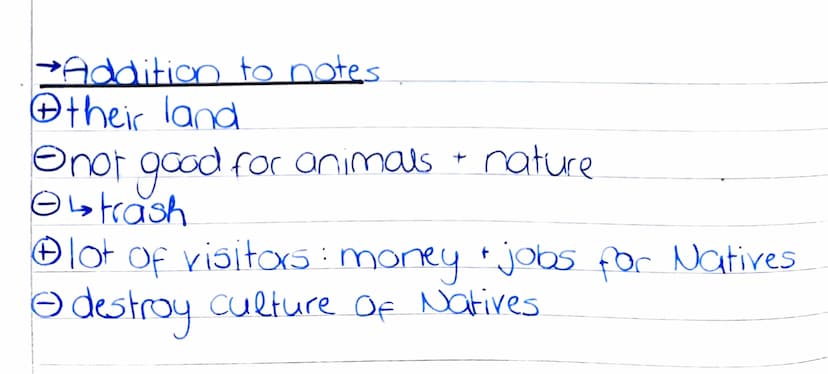 →Addition to notes
⊕their land
⊖not good for animals + nature
⊖↳trash
⊕lot of visitors: money + jobs for Natives
⊖destroy culture of Natives